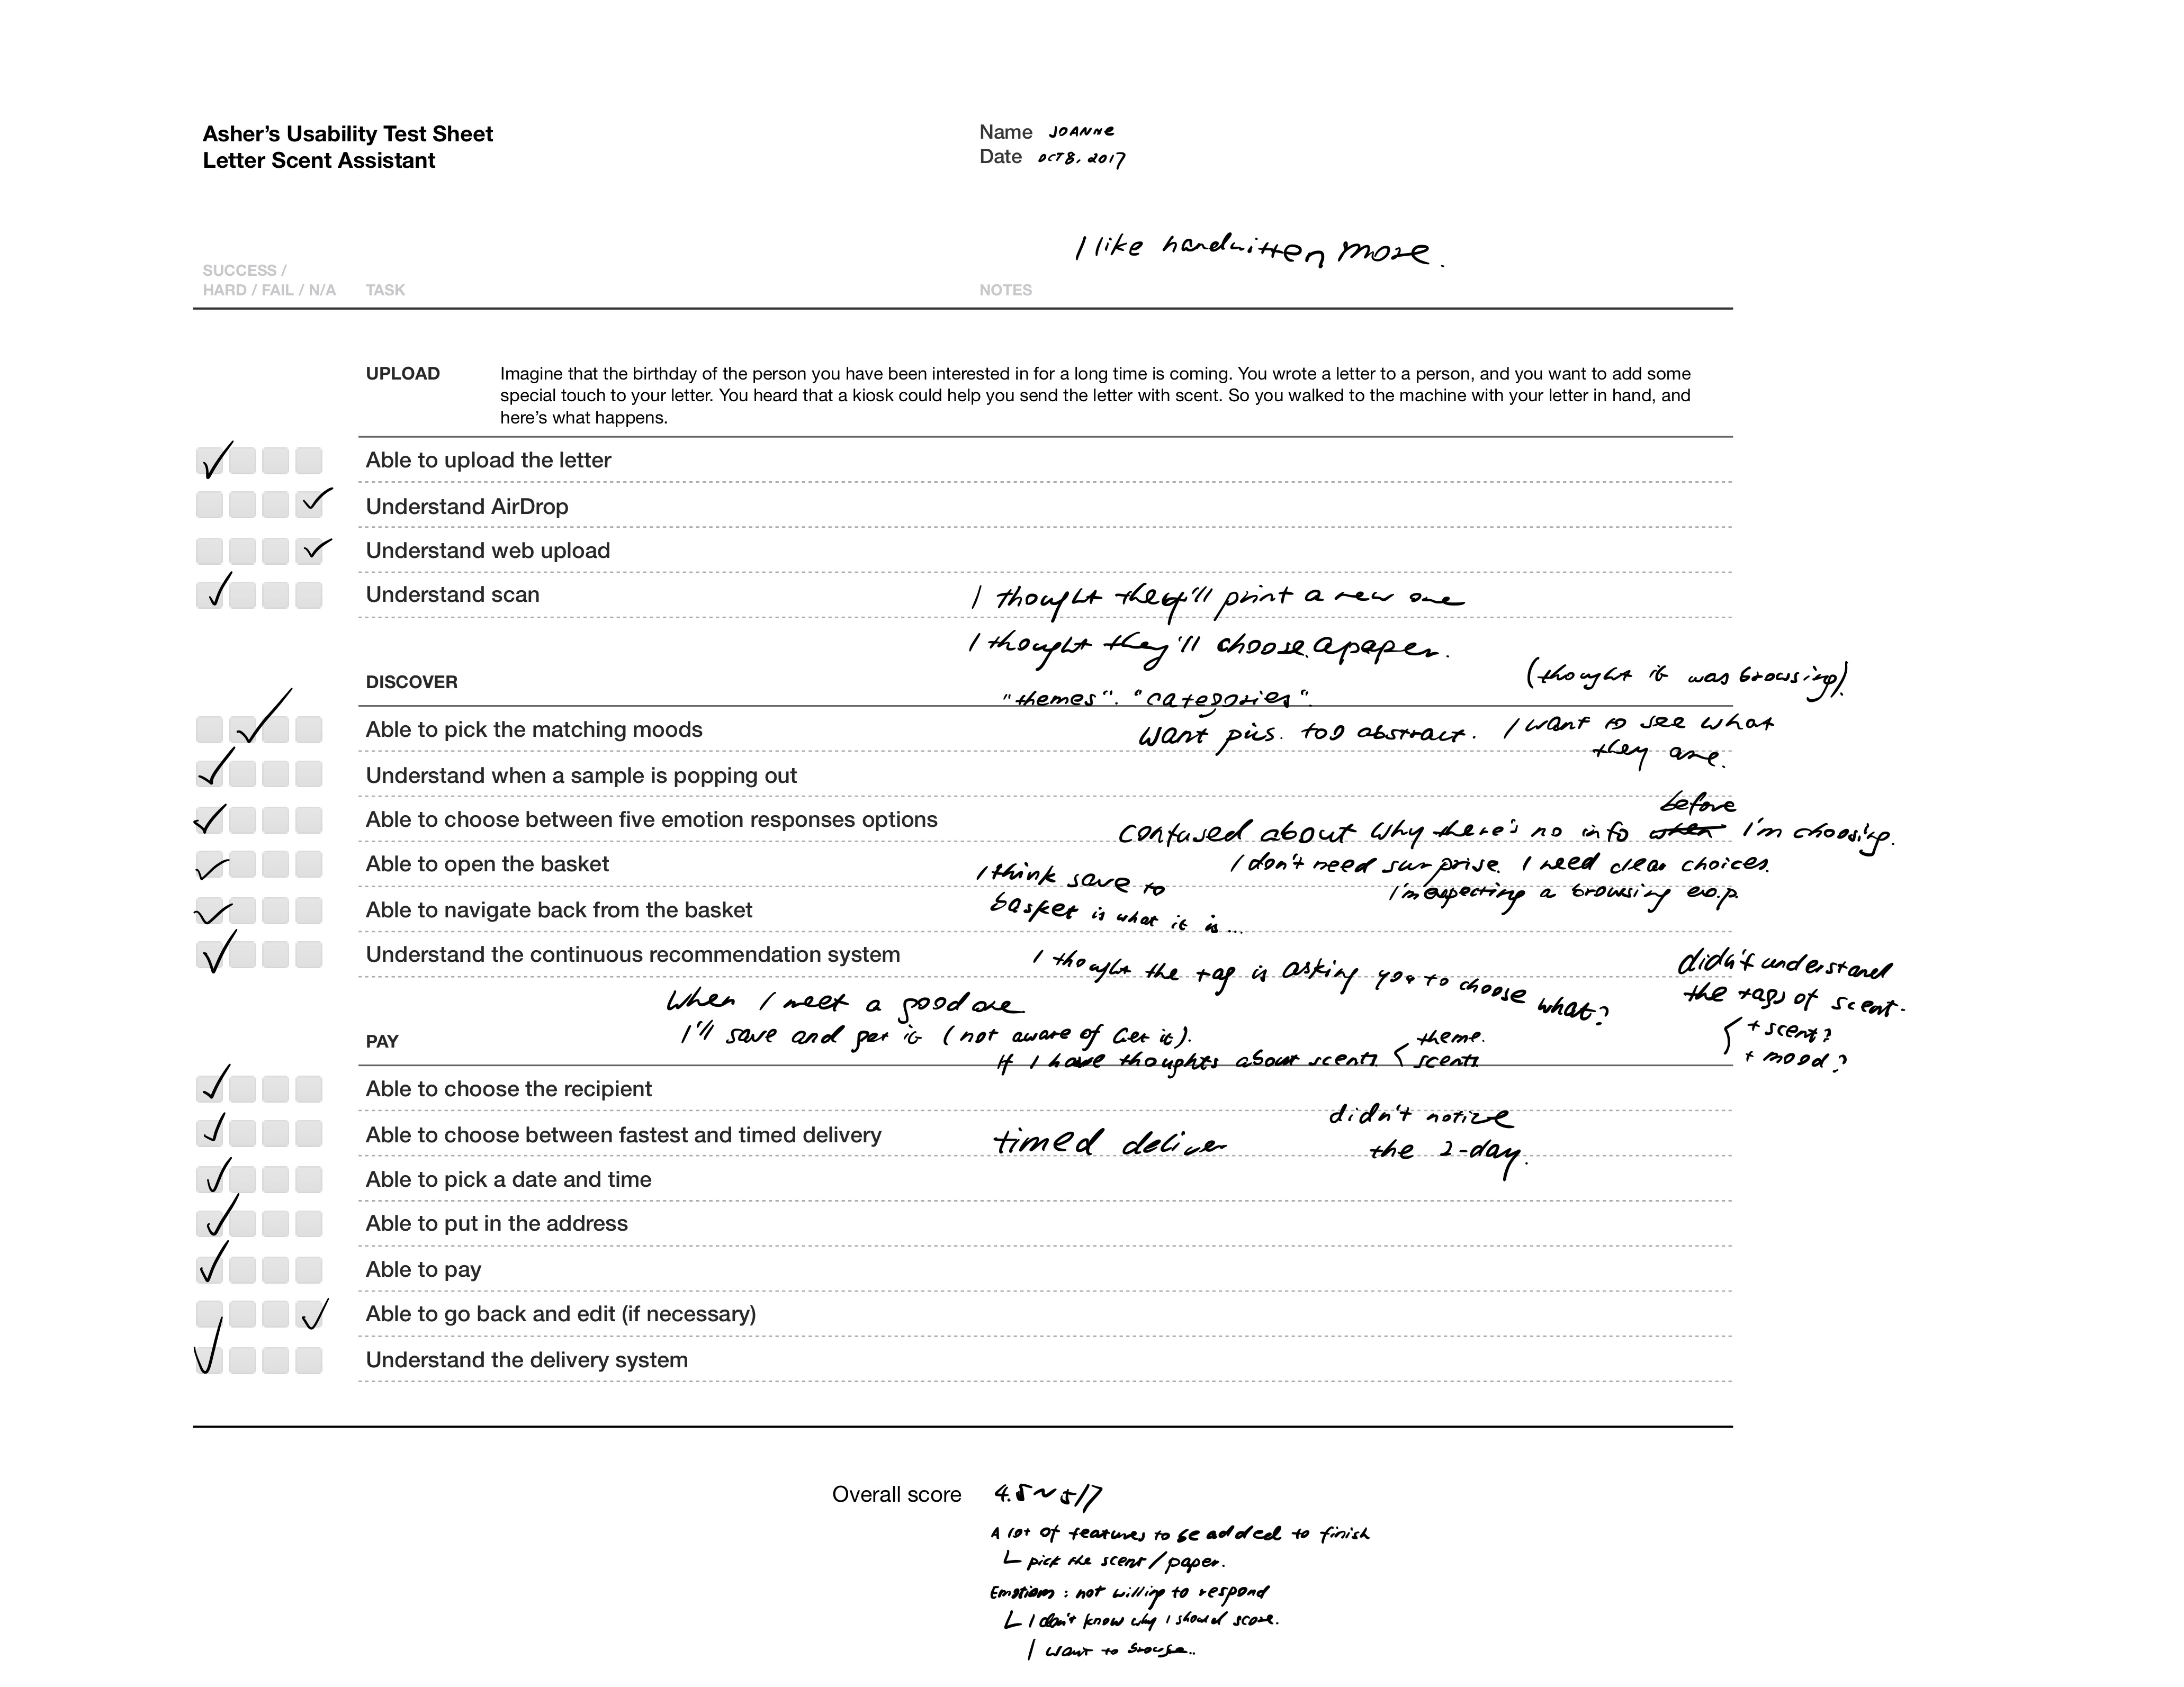 Asher's Usability Test Sheet
Letter Scent Assistant
Name JOANNE
Date OCT 8, 2017
I like handwritten more.
SUCCESS /
HARD / FAIL / N/A TASK NOTES
UPLOAD Imagine that the birthday of the person you have been interested in for a long time is coming. You wrote a letter to a person, and you want to add some
special touch to your letter. You heard that a kiosk could help you send the letter with scent. So you walked to the machine with your letter in hand, and
here's what happens.
Able to upload the letter
Understand AirDrop
Understand web upload
Understand scan I thought they'll print a new one
I thought they'll choose a paper.
(thought it was browsing).
DISCOVER
"themes". "categories".
Able to pick the matching moods want pics. too abstract. I want to see what
they are.
Understand when a sample is popping out
before
Able to choose between five emotion responses options confused about why there's no info when I'm choosing.
Able to open the basket I don't need surprise. I need clear choices.
I think save to I'm expecting a browsing exp.
Able to navigate back from the basket basket is what it is...
Understand the continuous recommendation system I thought the tag is asking you to choose what?
didn't understand
the tags of scent.
+ scent?
+ mood?
When I meet a good one
I'll save and get it (not aware of Get it).
PAY
If I have thoughts about scents theme.
scents
Able to choose the recipient
didn't notice
Able to choose between fastest and timed delivery timed deliver the 2-day.
Able to pick a date and time
Able to put in the address
Able to pay
Able to go back and edit (if necessary)
Understand the delivery system
Overall score 4.5~5/7
A lot of features to be added to finish
pick the scent / paper.
Emotions : not willing to respond
I don't know why I should score.
I want to browse..